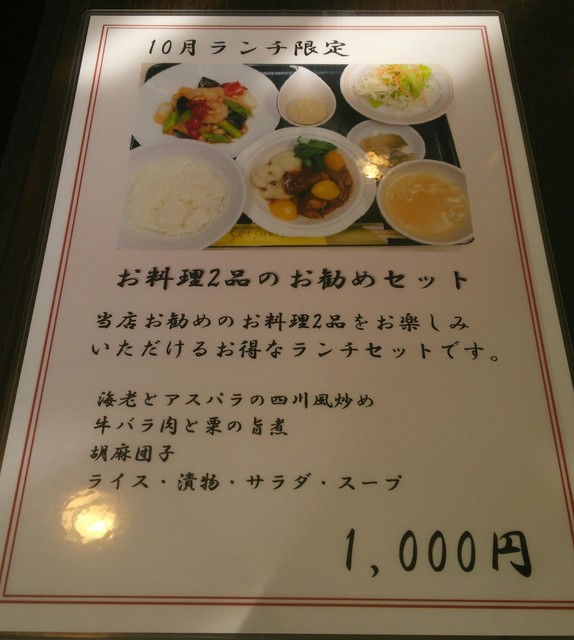 10月ランチ限定
お料理2品のお勧めセット
当店お勧めのお料理2品をお楽しみ
いただけるお得なランチセットです。
海老とアスパラの四川風炒め
牛バラ肉と栗の旨煮
胡麻団子
ライス・漬物・サラダ・スープ
1,000円